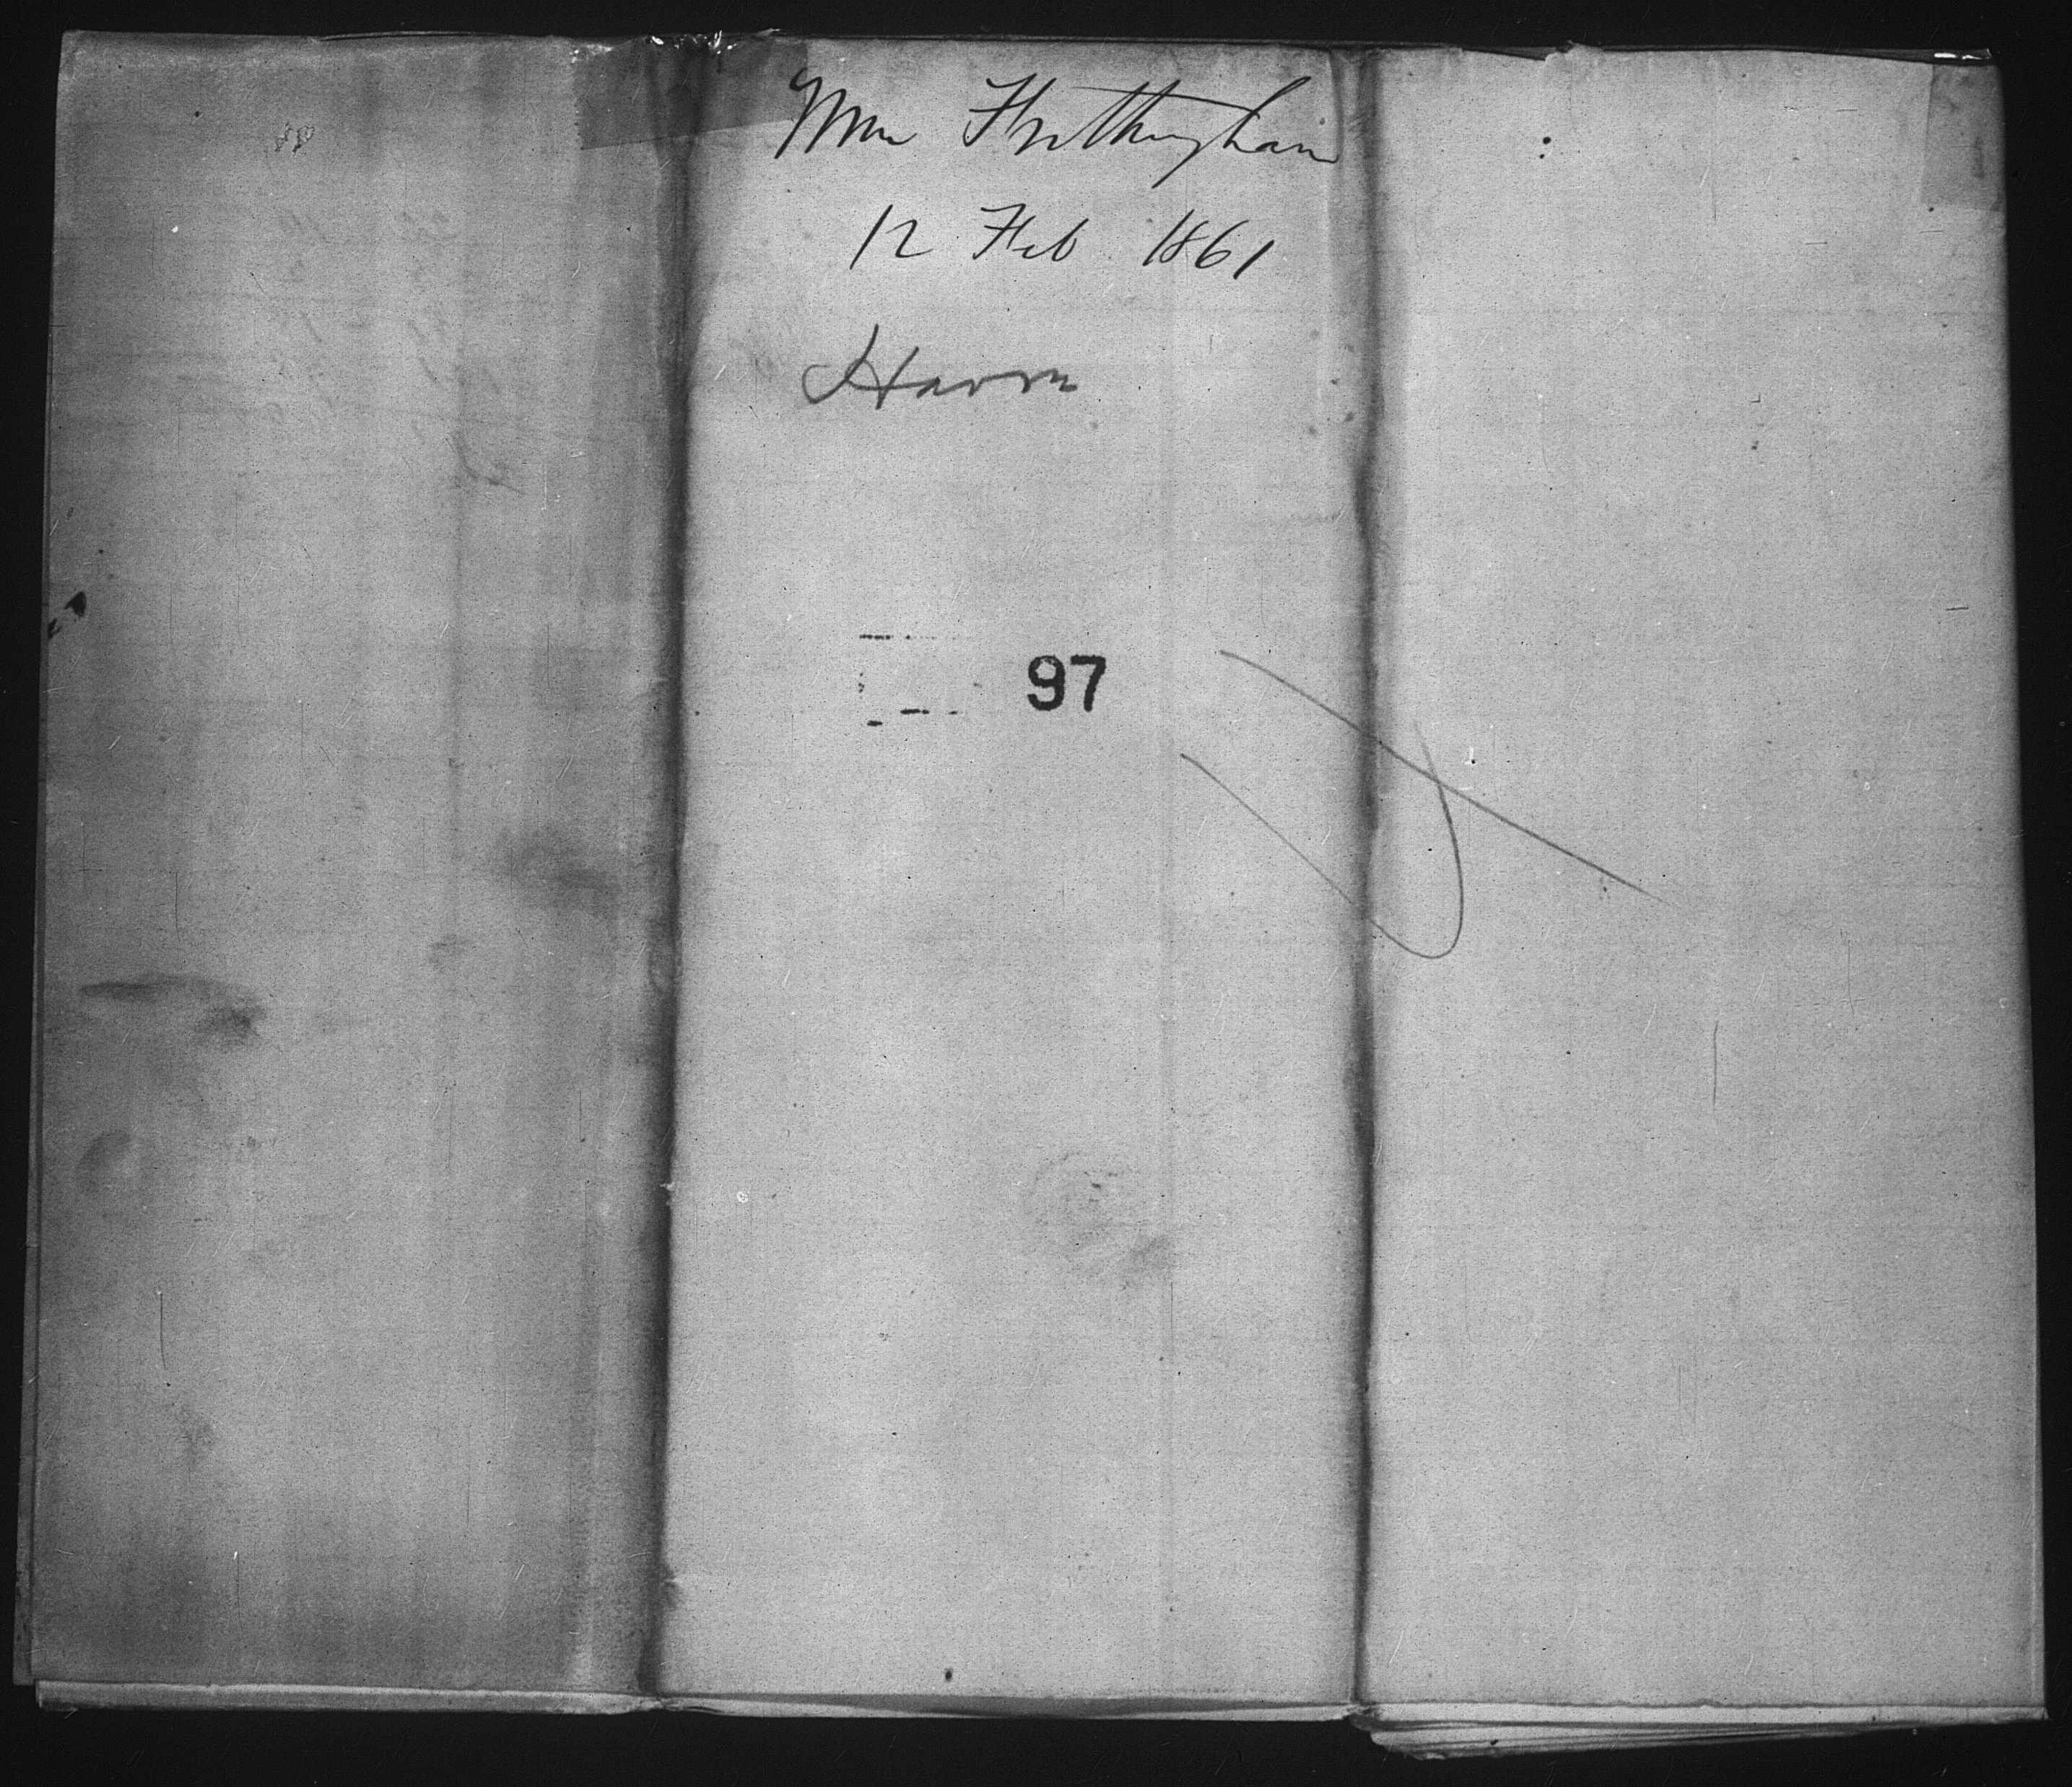 Wm Frothingham
12 Feb 1861
Havre
97